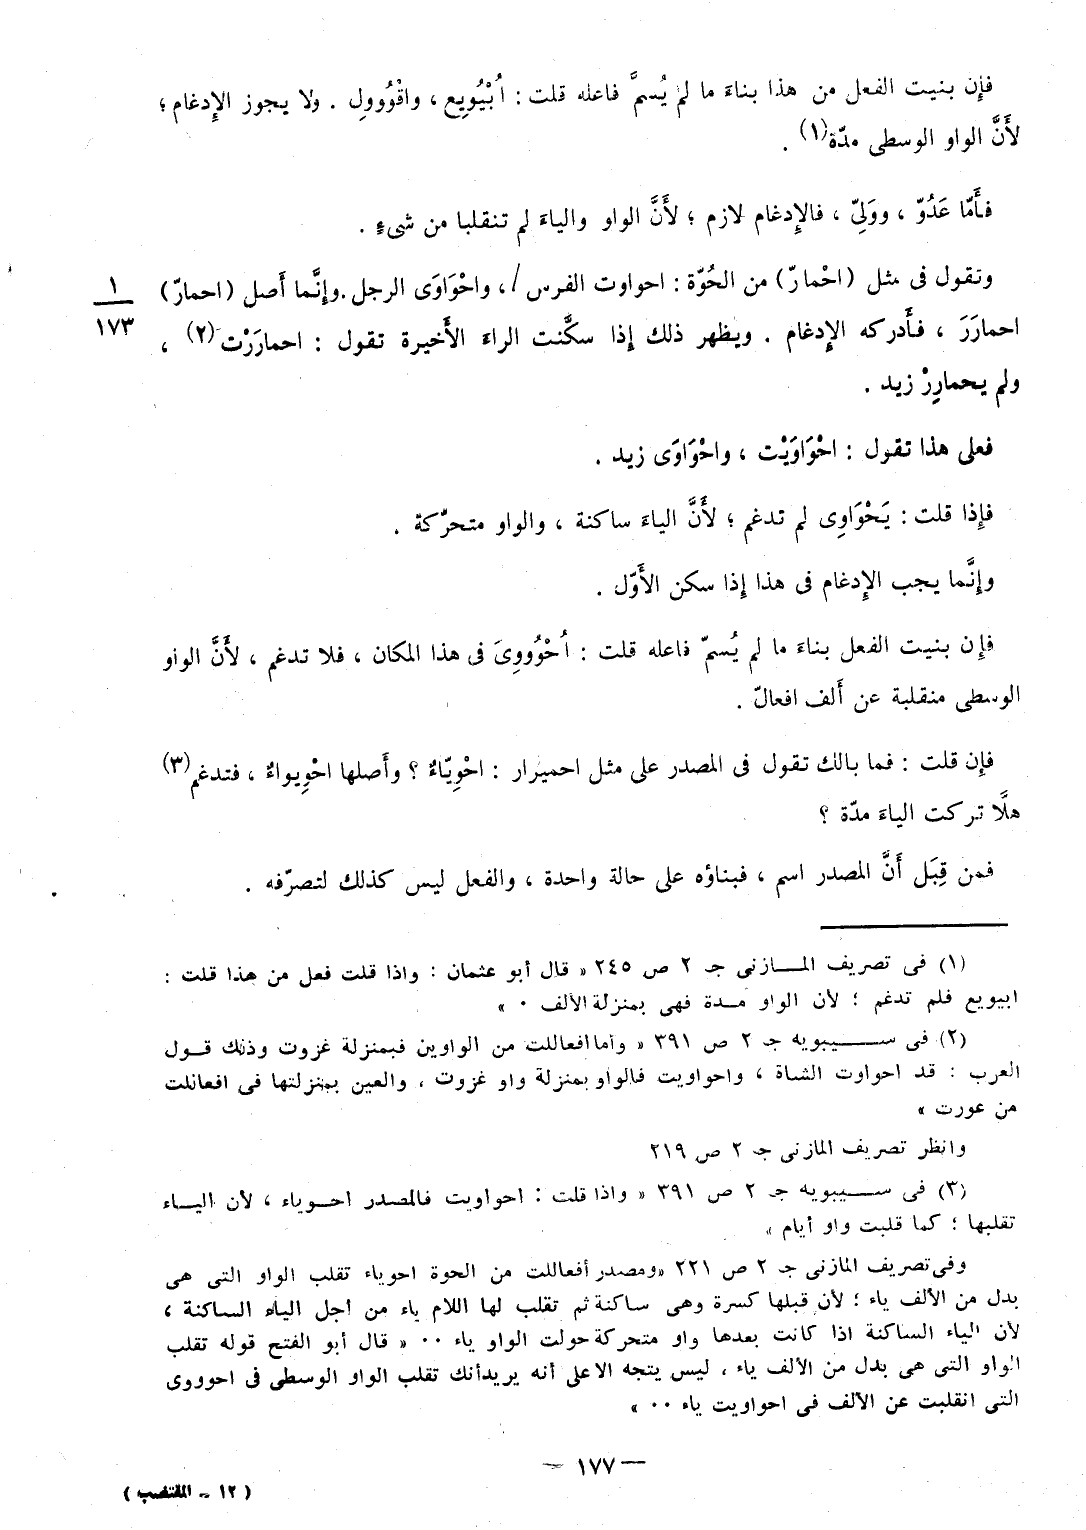 فإِن بنيت الفعل من هذا بناءَ ما لم يُسمَّ فاعله قلت : اُبْيُويِع ، واقْوُووِل . ولا يجوز الإِدغام ؛
لأَنَّ الواو الوسطى مدّة(١) .
فأَمّا عَدُوّ ، ووَلِىّ ، فالإِدغام لازم ؛ لأَنَّ الواو والياءَ لم تنقلبا من شىءٍ .
وتقول فى مثل (احْمارّ) من الحُوّة : احواوت الفرس / ، واحْوَاوَى الرجل . وإِنَّما أَصل (احمارّ)
١
١٧٣
احمارَرَ ، فأَدركه الإِدغام . ويظهر ذلك إِذا سكَّنت الراءَ الأَخيرة تقول : احمارَرْت(٢) ،
ولم يحمارِرْ زيد .
فعلى هذا تقول : احْوَاوَيْت ، واحْوَاوَى زيد .
فإِذا قلت : يَحْوَاوِى لم تدغم ؛ لأَنَّ الياءَ ساكنة ، والواو متحرّكة .
وإِنَّما يجب الإِدغام فى هذا إِذا سكن الأَوّل .
فإِن بنيت الفعل بناءَ ما لم يُسمّ فاعله قلت : اُحْوُووِىَ فى هذا المكان ، فلا تدغم ، لأَنَّ الواو
الوسطى منقلبة عن أَلف افعالّ .
فإِن قلت : فما بالك تقول فى المصدر على مثل احميرار : احْوِيّاءٌ ؟ وأَصلها احْوِيواءٌ ، فتدغم(٣)
هلَّا تركت الياءَ مدّة ؟
فمن قِبَل أَنَّ المصدر اسم ، فبناؤه على حالة واحدة ، والفعل ليس كذلك لتصرّفه .
(١) فى تصريف المازنى جـ ٢ ص ٢٤٥ « قال أبو عثمان : واذا قلت فعل من هذا قلت :
ابيويع فلم تدغم ؛ لأن الواو مدة فهى بمنزلة الألف ٠ »
(٢) فى سيبويه جـ ٢ ص ٣٩١ « وأما افعاللت من الواوين فبمنزلة غزوت وذلك قول
العرب : قد احواوت الشاة ، واحواويت فالواو بمنزلة واو غزوت ، والعين بمنزلتها فى افعاللت
من عورت »
وانظر تصريف المازنى جـ ٢ ص ٢١٩
(٣) فى سيبويه جـ ٢ ص ٣٩١ « واذا قلت : احواويت فالمصدر احوياء ، لأن الياء
تقلبها ؛ كما قلبت واو أيام »
وفى تصريف المازنى جـ ٢ ص ٢٢١ «ومصدر أفعاللت من الحوة احوياء تقلب الواو التى هى
بدل من الألف ياء ؛ لأن قبلها كسرة وهى ساكنة ثم تقلب لها اللام ياء من أجل الياء الساكنة ؛
لأن الياء الساكنة اذا كانت بعدها واو متحركة حولت الواو ياء ٠٠ « قال أبو الفتح قوله تقلب
الواو التى هى بدل من الألف ياء ، ليس يتجه الا على أنه يريد أنك تقلب الواو الوسطى فى احوووى
التى انقلبت عن الألف فى احواويت ياء ٠٠ »
— ١٧٧ —
( ١٢ - المقتضب )